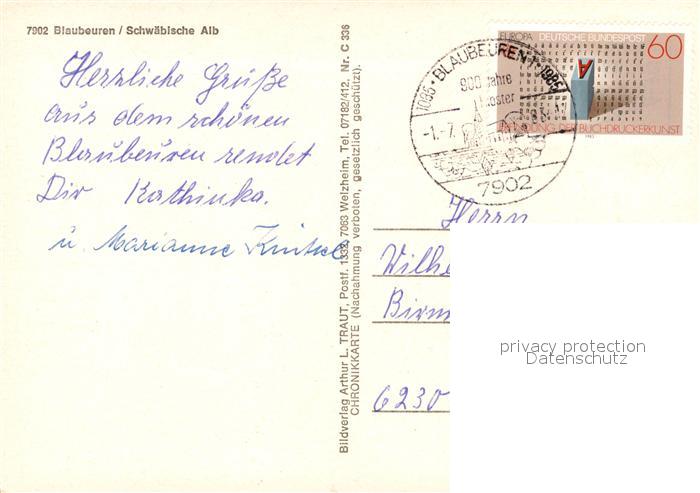 7902 Blaubeuren / Schwäbische Alb
Herzliche Grüße
aus dem schönen
Blaubeuren sendet
Dir Kathinka.
u. Marianne
Bildverlag Arthur L. TRAUT, Postf. 1332, 7063 Welzheim, Tel. 07182/412. Nr. C 336
CHRONIKKARTE (Nachahmung verboten, gesetzlich geschützt).
1085 · BLAUBEUREN · 1985
900 Jahre
Kloster
-1.-7.
7902
EUROPA DEUTSCHE BUNDESPOST 60
A
ERFINDUNG DER BUCHDRUCKERKUNST
1983
Herrn
Wilhe
Birm
6230
privacy protection
Datenschutz